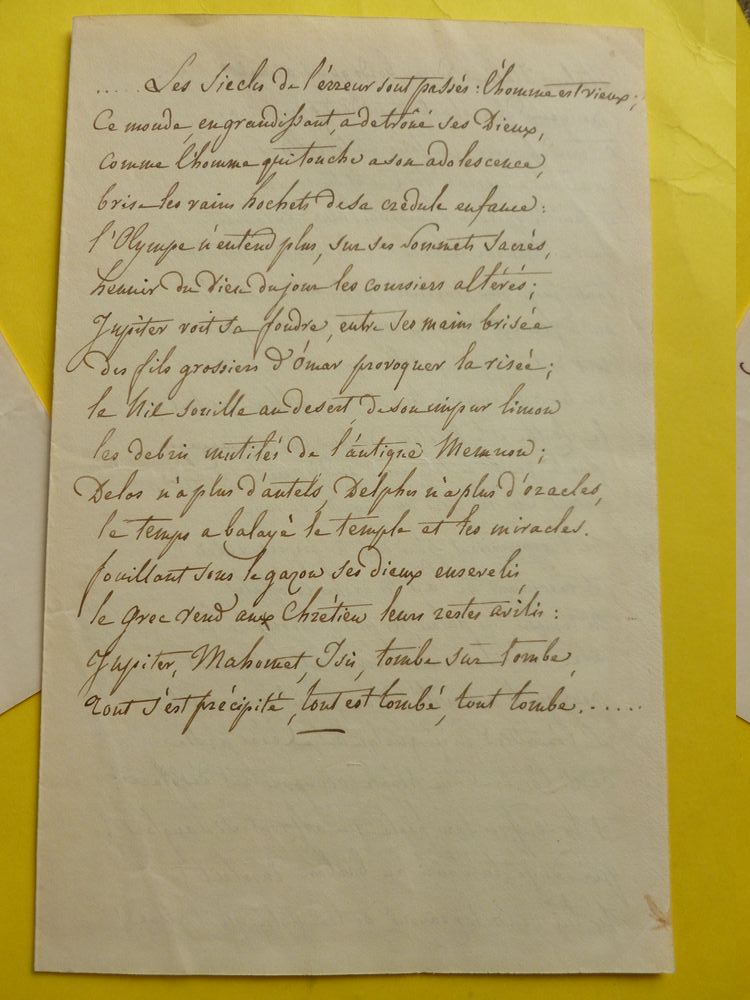 ..... Les siecles de l'érreur sont passés : l'homme est vieux ;
Ce monde, en grandissant, a detrôné ses Dieux,
comme l'homme qui touche a son adolescence,
brise les vains hochets de sa credule enfance :
l'Olympe n'entend plus, sur ses sommets sacrés,
hennir du Dieu du jour les coursiers altérés ;
Jupiter voit sa foudre, entre ses mains brisée
des fils grossiers d'Omar provoquer la risée ;
le Nil souille au desert, de son impur limon
les debris mutilés de l'antique Memnon ;
Delos n'a plus d'autels, Delphes n'a plus d'oracles,
le temps a balayé le temple et les miracles.
fouillant sous le gazon ses dieux ensevelis,
le grec vend aux Chrétien leurs restes avilis :
Jupiter, Mahomet, Isis, tombe sur tombe,
Tout s'est précipité, tout est tombé, tout tombe......